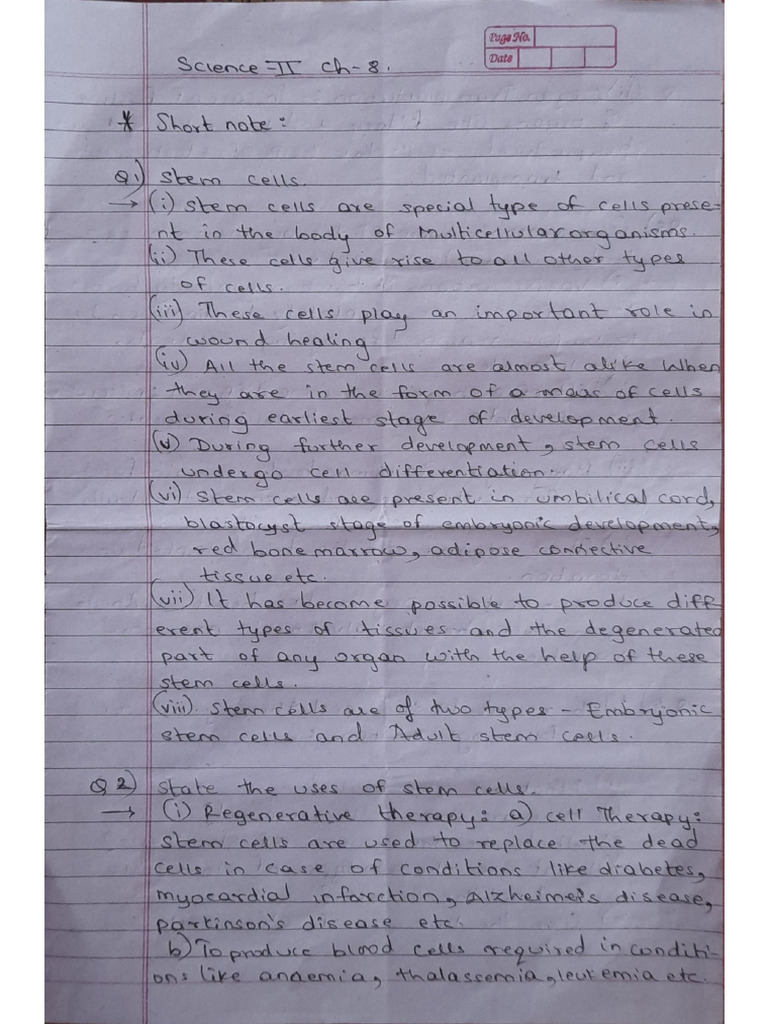 Page No.
Date
Science-II Ch-8.
* Short note:
Q1) Stem cells.
→ (i) Stem cells are special type of cells prese-
nt in the body of Multicellular organisms.
(ii) These cells give rise to all other types
of cells.
(iii) These cells play an important role in
wound healing
(iv) All the stem cells are almost alike When
they are in the form of a mass of cells
during earliest stage of development.
(v) During further development, stem cells
undergo cell differentiation.
(vi) Stem cells are present in umbilical cord,
blastocyst stage of embryonic development,
red bone marrow, adipose connective
tissue etc.
(vii) It has become possible to produce diff
erent types of tissues and the degenerated
part of any organ with the help of these
stem cells.
(viii). Stem cells are of two types - Embryonic
stem cells and Adult stem cells.
Q2) State the uses of stem cells.
→ (i) Regenerative therapy: a) cell Therapy:
Stem cells are used to replace the dead
cells in case of conditions like diabetes,
myocardial infarction, Alzheimer's disease,
parkinson's disease etc.
b) To produce blood cells required in conditi-
ons like anaemia, thalassemia, leukemia etc.